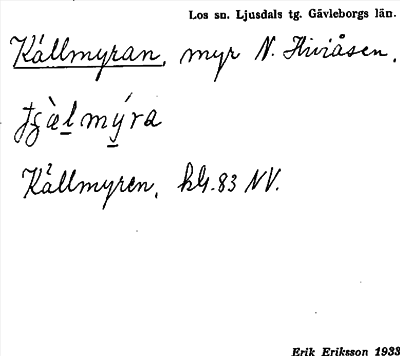 Los sn. Ljusdals tg. Gävleborgs län.
Källmyran, myr N. Hiviåsen.
Källmyren, kbl. 83 NV.
Erik Eriksson 1933